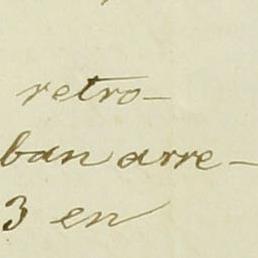 retro-
ban arre-
3 en